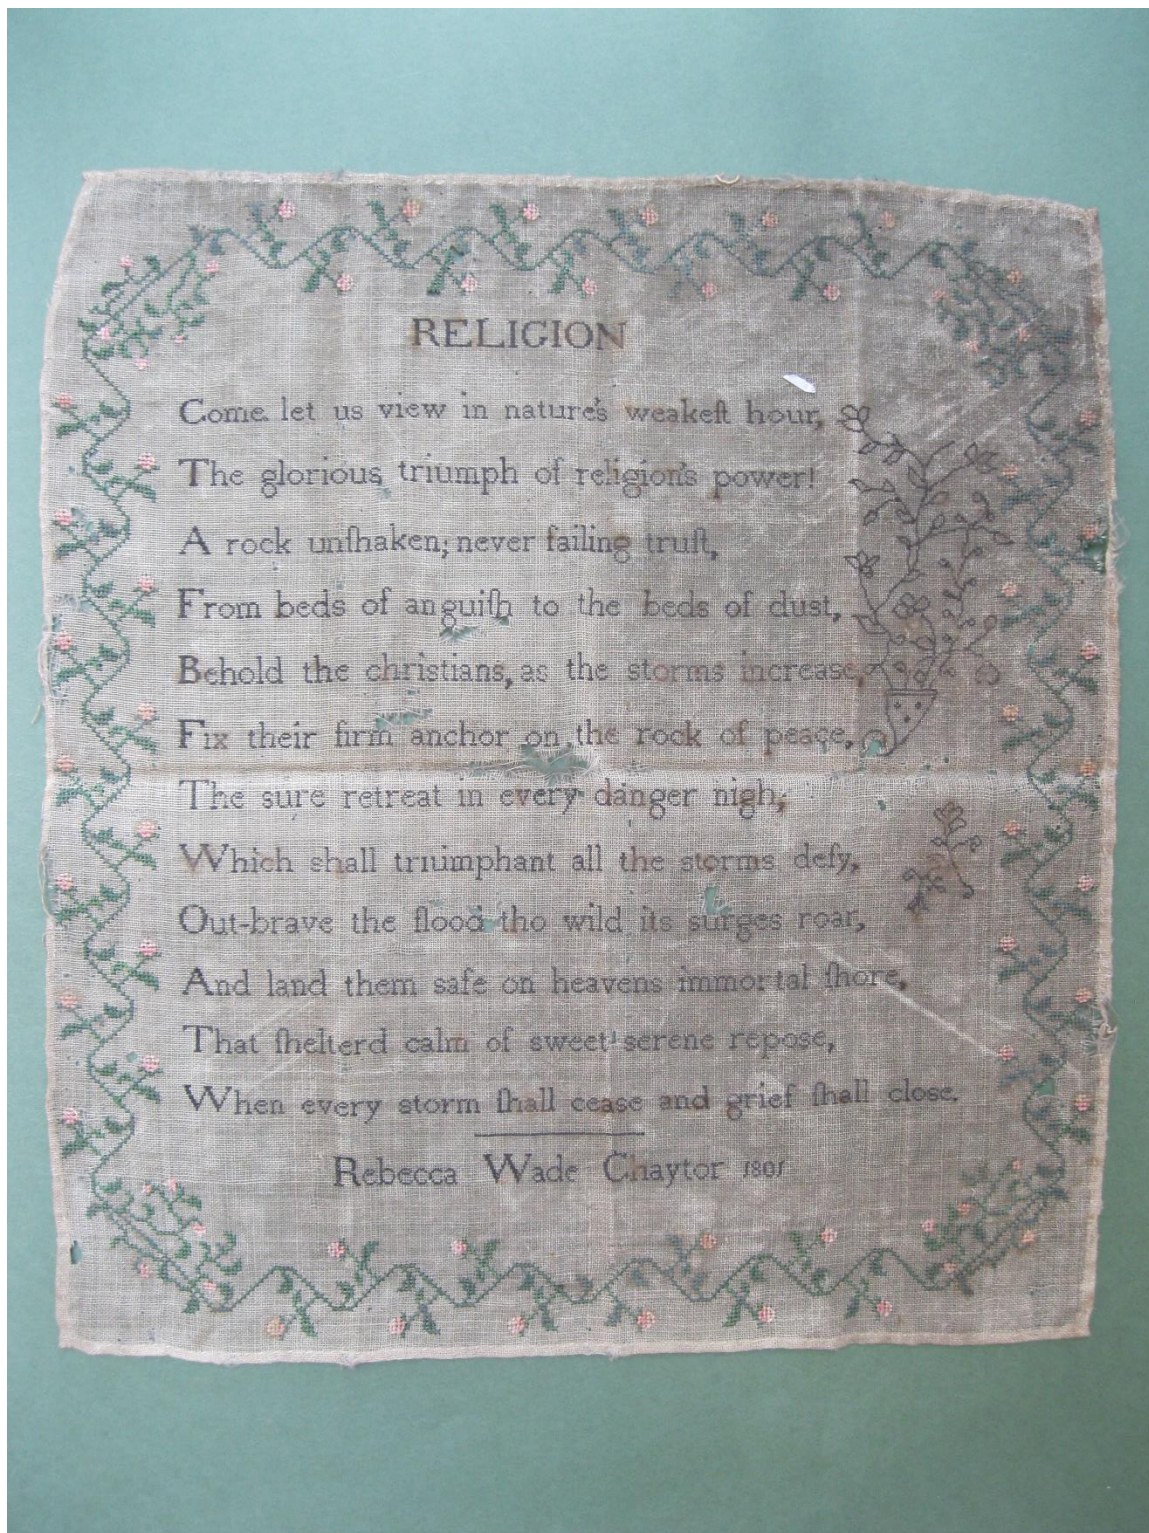 RELIGION
Come let us view in nature's weakeſt hour,
The glorious triumph of religion's power!
A rock unſhaken; never failing truſt,
From beds of anguiſh to the beds of dust,
Behold the christians, as the storms increase,
Fix their firm anchor on the rock of peace,
The sure retreat in every danger nigh,
Which shall triumphant all the storms defy,
Out-brave the flood tho wild its surges roar,
And land them safe on heavens immortal ſhore,
That ſhelterd calm of sweet serene repose,
When every storm ſhall cease and grief ſhall close.
Rebecca Wade Chaytor 1801